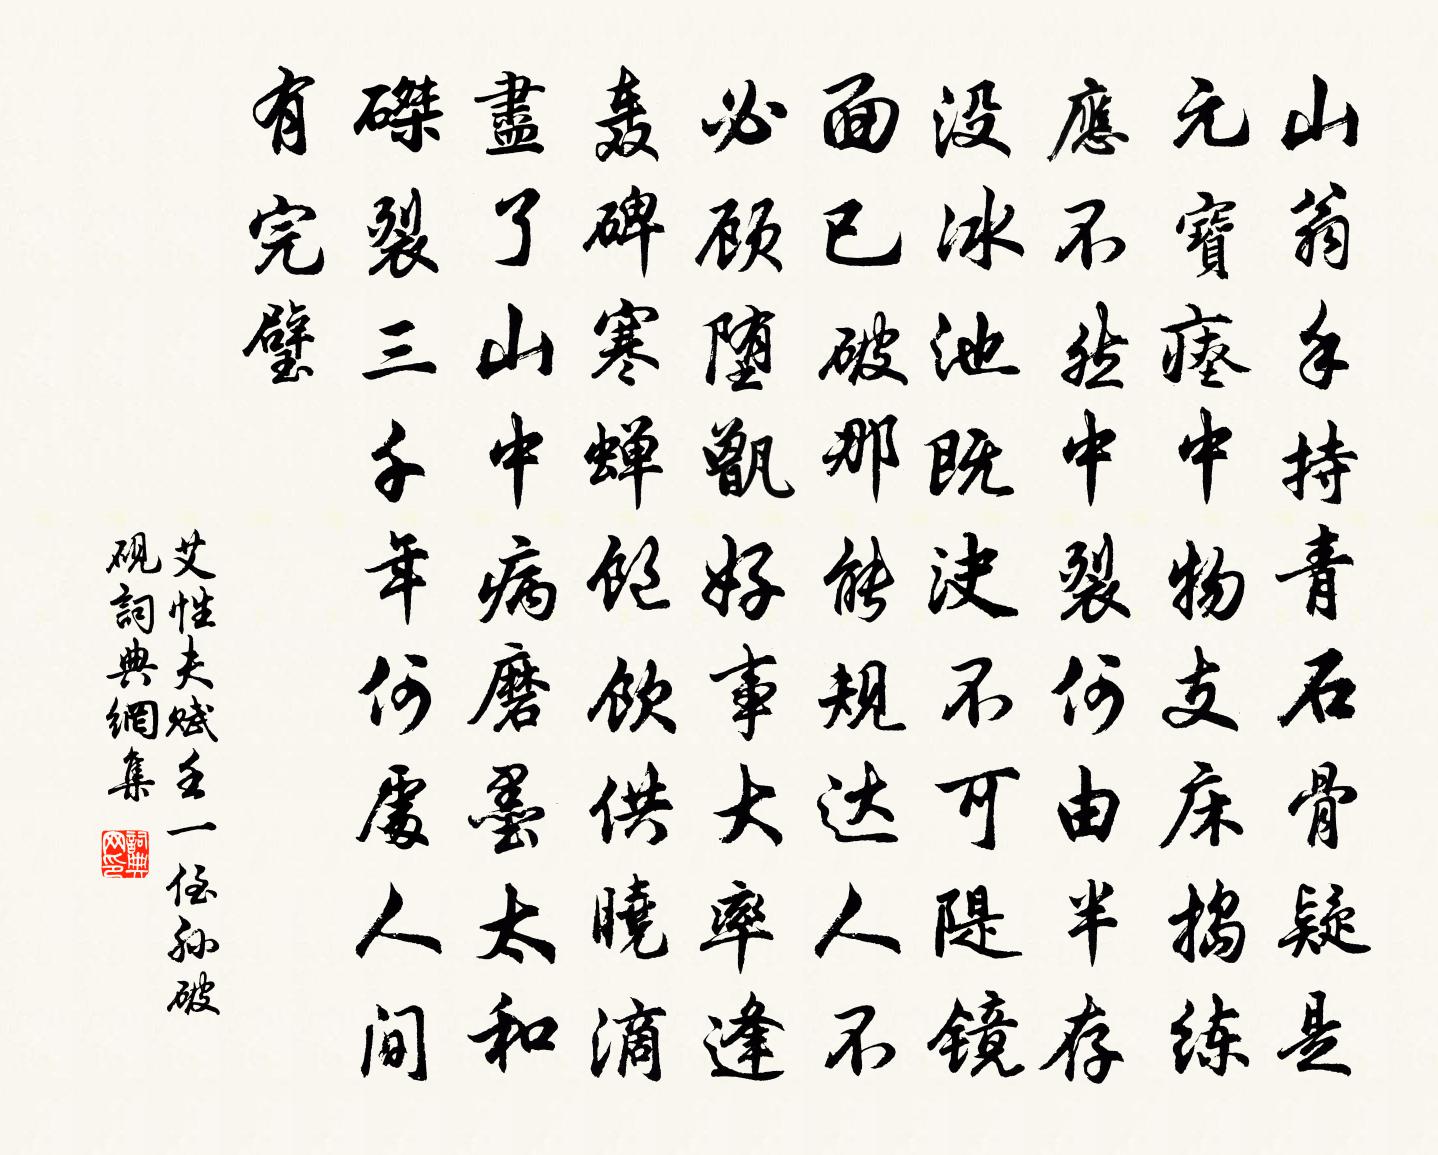 山翁手持青石骨疑是
元寶瘗中物支床搗练
應不然中裂何由半存
没冰池既決不可隄镜
面已破那能规达人不
必顾堕甑好事大率逢
轰碑寒蝉饱饮供曉滴
盡了山中病磨墨太和
磔裂三千年何處人间
有完璧
艾性夫赋王一侄孙破
砚詞典網集
詞典网印